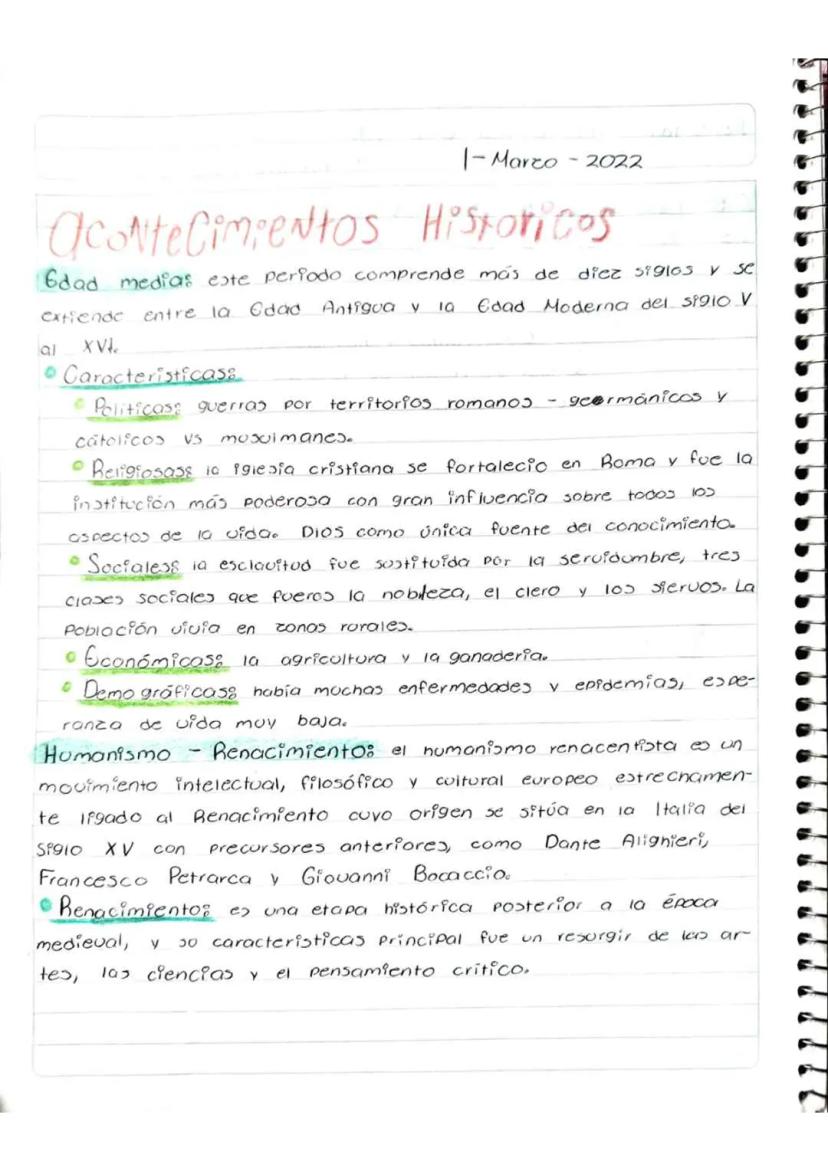 1 - Marzo - 2022
Acontecimientos Historicos
Edad media: este periodo comprende más de diez siglos y se
extiende entre la Edad Antigua y la Edad Moderna del siglo V
al XVI.
Caracteristicas:
Politicas: guerras por territorios romanos - germánicos y
católicos vs musulmanes.
Religiosas: la iglesia cristiana se fortalecio en Roma y fue la
institución más poderosa con gran influencia sobre todos los
aspectos de la vida. Dios como única fuente del conocimiento.
Sociales: la esclavitud fue sustituida por la servidumbre, tres
clases sociales que fueros la nobleza, el clero y los siervos. La
Población vivia en zonas rurales.
Económicas: la agricultura y la ganadería.
Demográficas: había muchas enfermedades y epidemias, espe-
ranza de vida muy baja.
Humanismo - Renacimiento: el humanismo renacentista es un
movimiento intelectual, filosófico y cultural europeo estrechamen-
te ligado al Renacimiento cuyo origen se sitúa en la Italia del
Siglo XV con precursores anteriores, como Dante Alighieri,
Francesco Petrarca y Giovanni Bocaccio.
Renacimiento: es una etapa histórica posterior a la época
medieval, y su características principal fue un resurgir de las ar-
tes, las ciencias y el pensamiento critico.